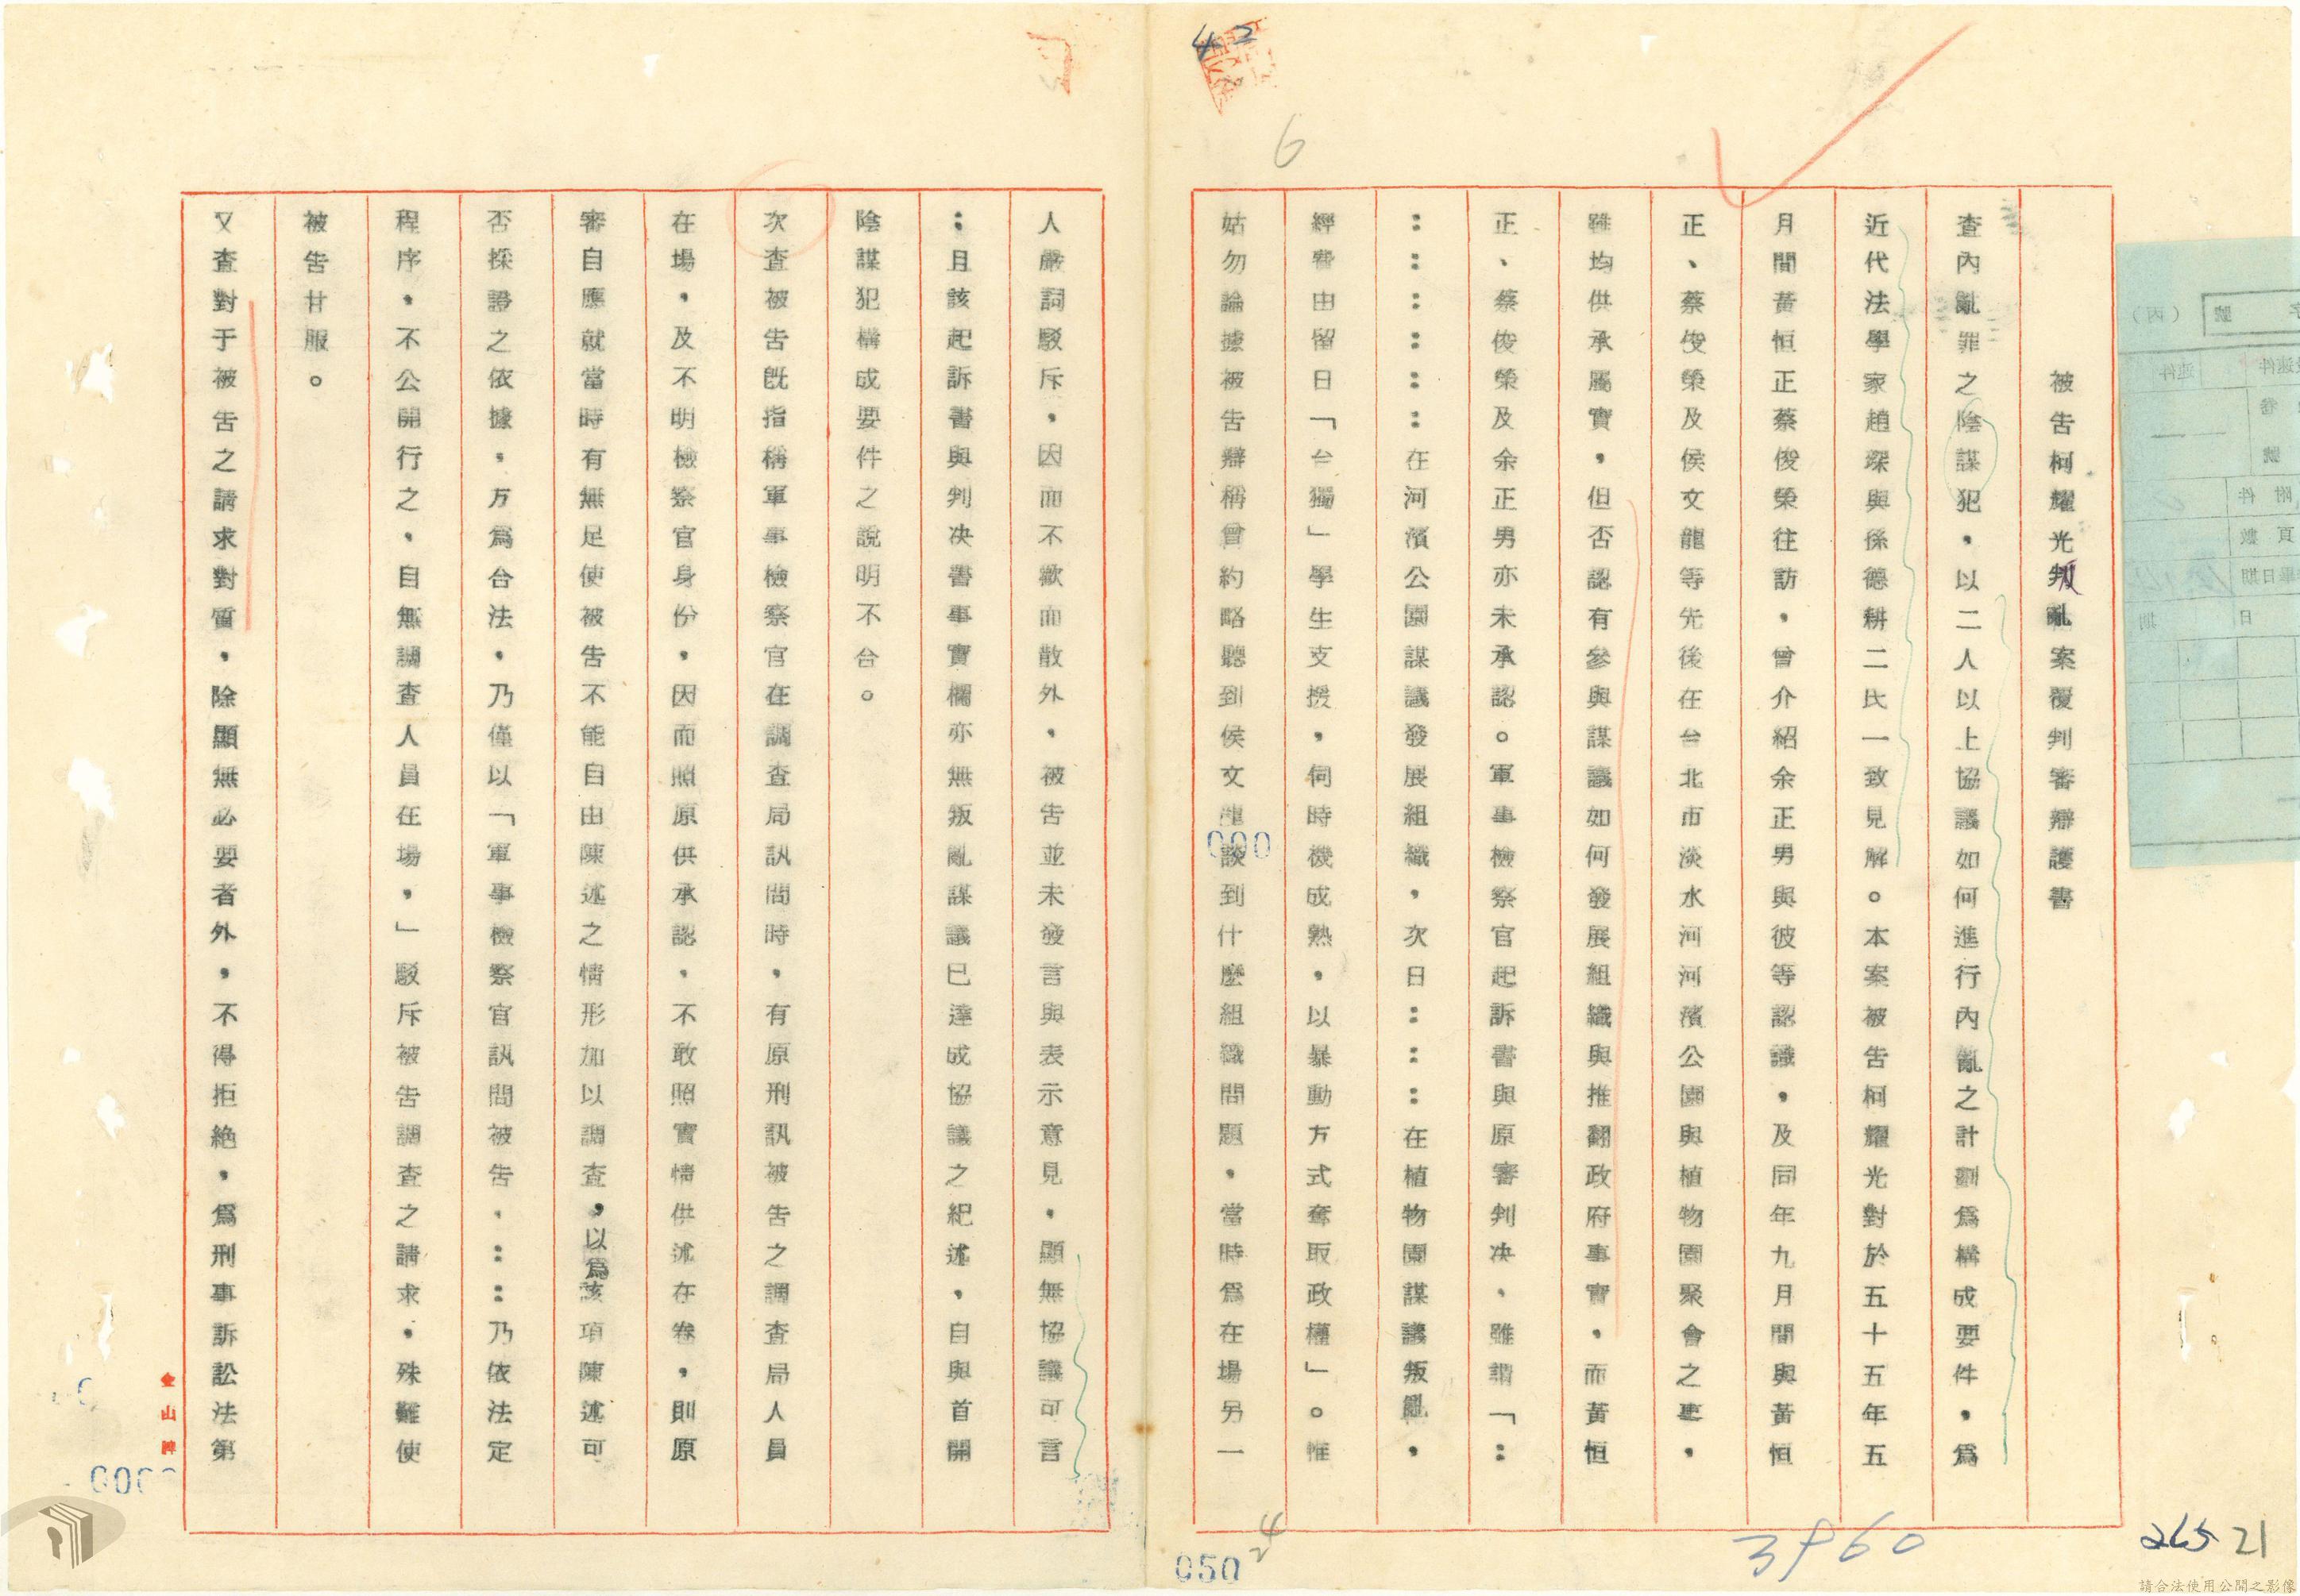 被告柯耀光叛亂案覆判審辯護書
查內亂罪之陰謀犯，以二人以上協議如何進行內亂之計劃爲構成要件，爲
近代法學家趙琛與孫德耕二氏一致見解。本案被告柯耀光對於五十五年五
月間黃恒正蔡俊榮往訪，曾介紹余正男與彼等認識，及同年九月間與黃恒
正、蔡俊榮及侯文龍等先後在台北市淡水河河濱公園與植物園聚會之事，
雖均供承屬實，但否認有參與謀議如何發展組織與推翻政府事實，而黃恒
正、蔡俊榮及余正男亦未承認。軍事檢察官起訴書與原審判決、雖謂「：
：：：：：：在河濱公園謀議發展組織，次日：：：在植物園謀議叛亂，
經費由留日「台獨」學生支援，伺時機成熟，以暴動方式奪取政權」。惟
姑勿論據被告辯稱曾約略聽到侯文龍談到什麼組織問題，當時爲在場另一
人嚴詞駁斥，因而不歡而散外，被告並未發言與表示意見，顯無協議可言
：且該起訴書與判決書事實欄亦無叛亂謀議已達成協議之紀述，自與首開
陰謀犯構成要件之說明不合。
次查被告既指稱軍事檢察官在調查局訊問時，有原刑訊被告之調查局人員
在場，及不明檢察官身份，因而照原供承認，不敢照實情供述在卷，則原
審自應就當時有無足使被告不能自由陳述之情形加以調查，以爲該項陳述可
否採證之依據，方爲合法，乃僅以「軍事檢察官訊問被告，：：乃依法定
程序，不公開行之，自無調查人員在場，」駁斥被告調查之請求，殊難使
被告甘服。
又查對于被告之請求對質，除顯無必要者外，不得拒絶，爲刑事訴訟法第
42
6
000
050
24
3960
265 21
金山牌
請合法使用公開之影像